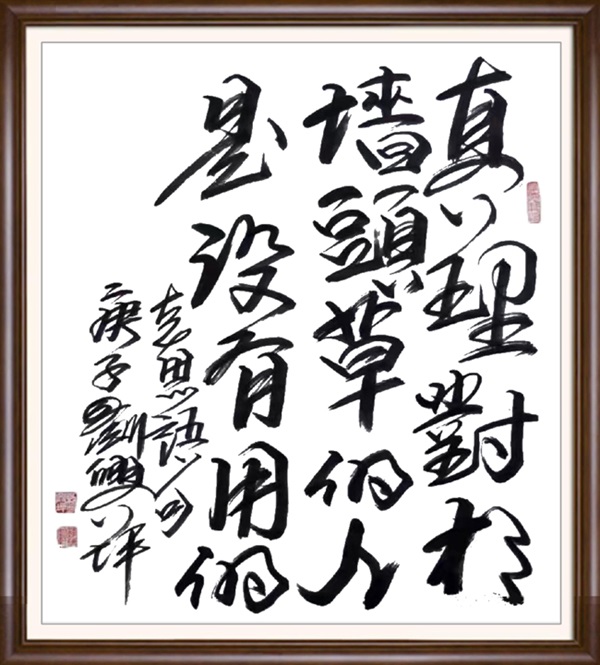 真理對於
墻頭草的人
是没有用的
思語
庚子劉